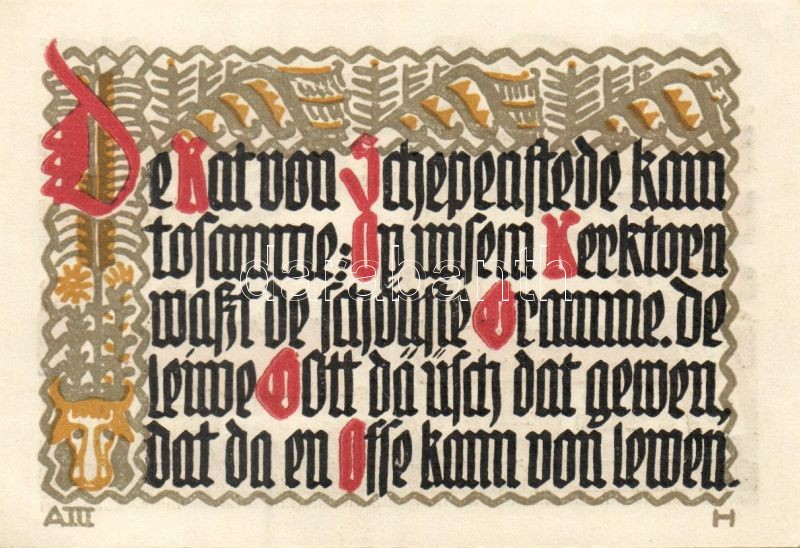 De Rat von Schepenstede kam
tosamme: In unsem Kerktorn
waßt de schönste Gramme. de
leiwe Gott dä üsch dat gewen,
dat da en Osse kann von lewen.
darabanth
AIII
H